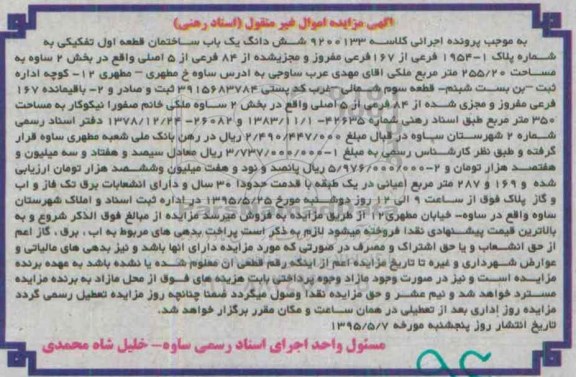 آگهی مزایده اموال غیر منقول (اسناد رهنی)
به موجب پرونده اجرائی کلاسه ۹۲۰۰۱۳۳ شش دانگ یک باب ساختمان قطعه اول تفکیکی به
شماره پلاک ۱-۱۹۵۴ فرعی از ۱۶۷ فرعی مفروز و مجزیشده از ۸۴ فرعی از ۵ اصلی واقع در بخش ۲ ساوه به
مساحت ۲۵۵/۲۰ متر مربع ملکی آقای مهدی عرب ساوجی به ادرس ساوه خ مطهری – مطهری ۱۲- کوچه اداره
ثبت –بن بست شبنم- قطعه سوم شمالی- غرب کد پستی ۳۹۱۵۶۸۳۷۸۴ ثبت و صادر و ۲- باقیمانده ۱۶۷
فرعی مفروز و مجزی شده از ۸۴ فرعی از ۵ اصلی واقع در بخش ۲ ساوه ملکی خانم صفورا نیکوکار به مساحت
۳۵۰ متر مربع طبق اسناد رهنی شماره ۴۲۶۳۵- ۱۳۸۳/۱۱/۱ و ۲۶۰۸۲- ۱۳۷۸/۱۲/۲۴ دفتر اسناد رسمی
شماره ۲ شهرستان ساوه در قبال مبلغ ۲/۴۹۰/۴۴۷/۰۰۰ ریال در رهن بانک ملی شعبه مطهری ساوه قرار
گرفته و طبق نظر کارشناس رسمی به مبلغ ۱-۳/۷۳۷/۰۰۰/۰۰۰ ریال معادل سیصد و هفتاد و سه میلیون و
هفتصد هزار تومان و ۲-۵/۹۷۶/۰۰۰/۰۰۰ ریال پانصد و نود و هفت میلیون وششصد هزار تومان ارزیابی
شده و ۱۶۹ و ۲۸۷ متر مربع اعیانی در یک طبقه با قدمت حدودا ۳۰ سال و دارای انشعابات برق تک فاز و اب
و گاز پلاک فوق از ساعت ۹ الی ۱۲ روز دوشنبه مورخ ۱۳۹۵/۵/۲۵ در اداره ثبت اسناد و املاک شهرستان
ساوه واقع در ساوه- خیابان مطهری ۱۲ از طریق مزایده به فروش میرسد مزایده از مبالغ فوق الذکر شروع و به
بالاترین قیمت پیشنهادی نقدا فروخته میشود لازم به ذکر است پراخت بدهی های مربوط به اب، برق، گاز اعم
از حق انشعاب و یا حق اشتراک و مصرف در صورتی که مورد مزایده دارای آنها باشد و نیز بدهی های مالیاتی و
عوارض شهرداری و غیره تا تاریخ مزایده اعم از اینکه رقم قطعی آن معلوم شده یا نشده باشد به عهده برنده
مزایده است و نیز در صورت وجود مازاد وجوه پرداختی بابت هزینه های فوق از محل مازاد به برنده مزایده
مسترد خواهد شد و نیم عشر و حق مزایده نقدا وصول میگردد ضمنا چنانچه روز مزایده تعطیل رسمی گردد
مزایده روز اداری بعد از تعطیلی در همان ساعت و مکان مقرر برگزار خواهد شد.
تاریخ انتشار روز پنجشنبه مورخه ۱۳۹۵/۵/۷
مسئول واحد اجرای اسناد رسمی ساوه– خلیل شاه محمدی